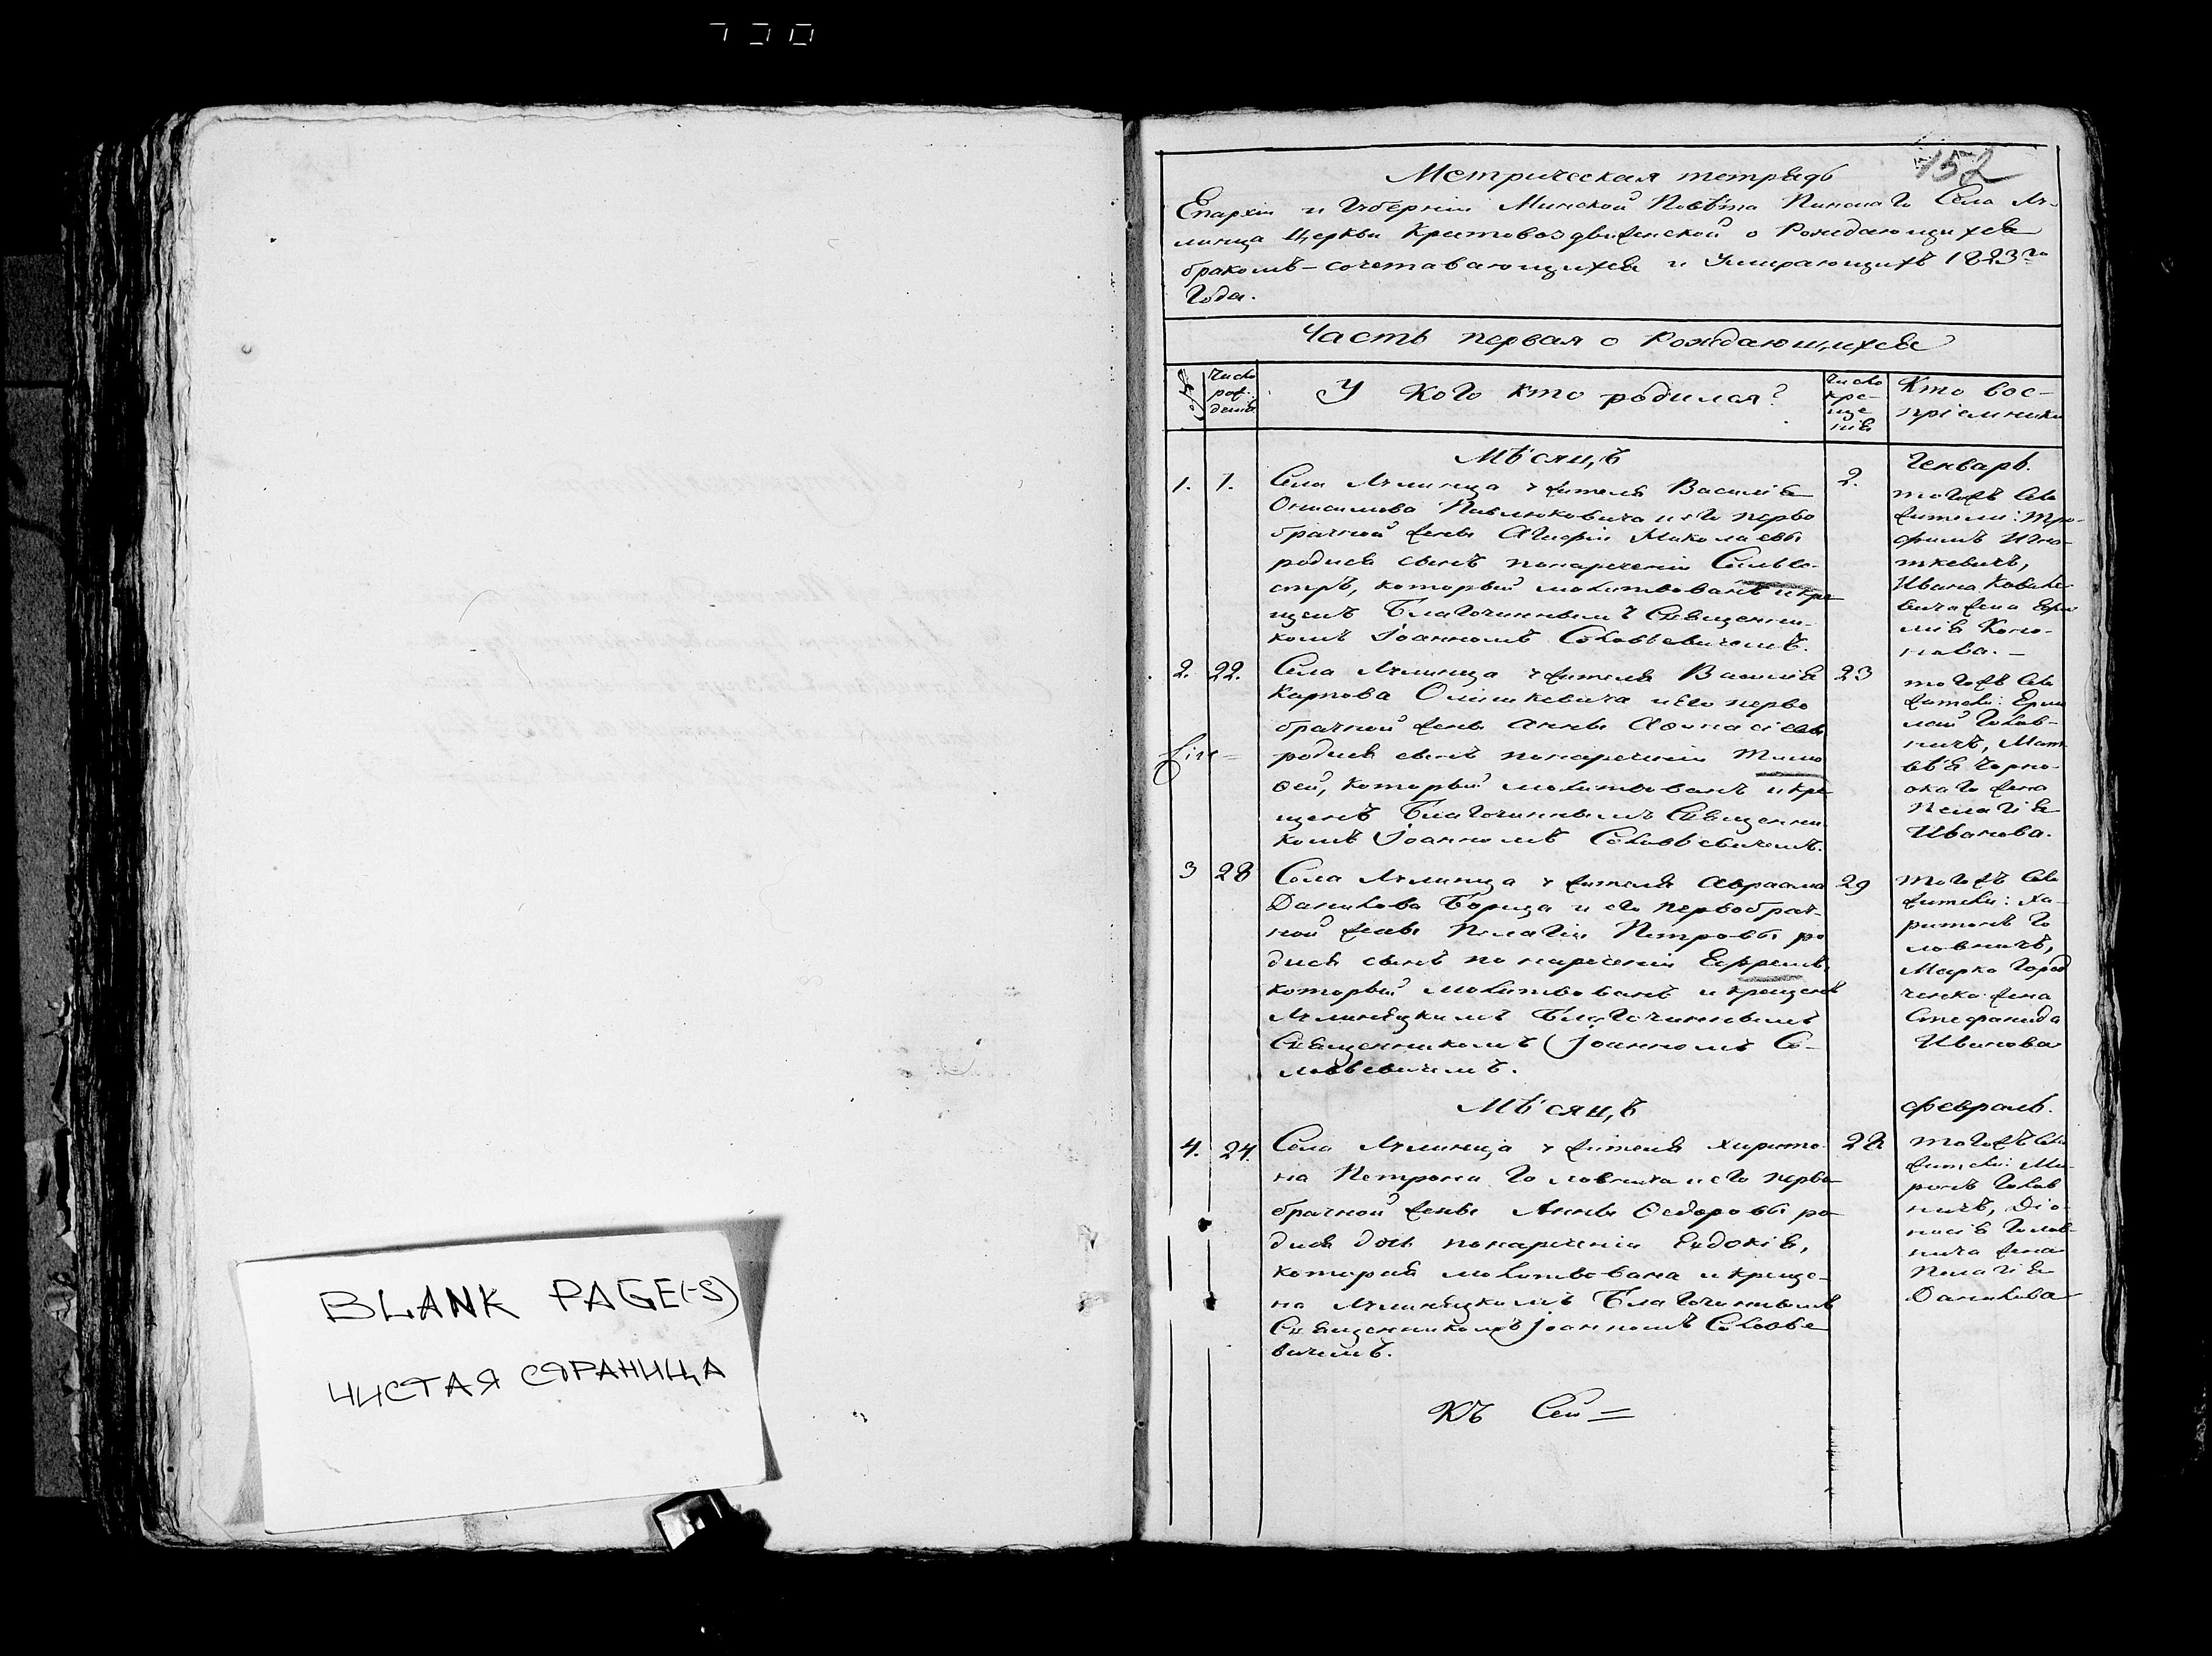 152
Метрическая тетрадь
Епархіи и Губерніи Минской Повѣта Пинскаго Села Лу-
линца Церкви Крестовоздвиженской о Рождающихся
бракомъ-сочетавающихся и Умирающихъ 1823го
Года.
Часть первая о Рождающихся
Число рож-денія
У кого кто родился?
Число кре-ще-нія
Кто вос-
пріемники
Мѣсяцъ
Генварь.
1. 1.
Села Лулинца жителя Василія
Онисимова Павлюковича и его перво
брачной жены Агафіи Миколаевы
родися сынъ понареченіи Сильве-
стръ, который молитвованъ и кре
щенъ Благочиннымъ Священни-
комъ Іоанномъ Соловьевичемъ.
2.
тогожъ Села
жители: Тро-
фимъ Игна-
ткевичъ,
Ивана Ковале
вича жена
Коно-
нова.
2. 22.
Села Лулинца жителя Василія
Карпова Олишкевича и его перво
брачной жены Анны Аѳанасіевы
родися сынъ понареченіи Тимо
ѳей, который молитвованъ и кре
щенъ Благочиннымъ Священни
комъ Іоанномъ Соловьевичемъ.
23
тогожъ Села
жители: Ермо
лай Голов-
ничъ, Мат
вѣя Чорно-
окаго жена
Пелагія
Иванова.
3 28
Села Лулинца жителя Авраама
Данилова Борица и его первобрач-
ной жены Пелагіи Петровы ро
дися сынъ понареченіи Ефремъ,
который молитвованъ и крещенъ
Лулинецкимъ Благочиннымъ
Священникомъ Іоанномъ Со-
ловьевичемъ.
29
тогожъ Села
жители: Ха-
ритонъ Го
ловничъ,
Марка Город
ченка жена
Стефанида
Иванова
Мѣсяцъ
февраль.
4. 24.
Села Лулинца жителя Харито-
на Петрова Головнича и его перво
брачной жены Анны Ѳедоровы ро
дися дочь понареченіи Евдокія,
которая молитвована и креще-
на Лулинецкимъ Благочиннымъ
Священникомъ Іоанномъ Соловье
вичемъ.
тогожъ Села
жители: Ми-
ронъ Голов
ничъ, Діо-
нисія Голов-
нича жена
Пелагія
Данилова
BLANK PAGE(-S)
ЧИСТАЯ СТРАНИЦА